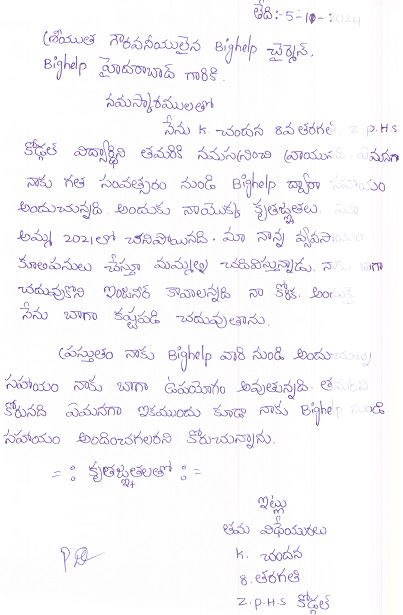 తేది:-5-10-2024
శ్రీయుత గౌరవనీయులైన Bighelp చైర్మెన్,
Bighelp హైదరాబాద్ గారికి.
నమస్కారములతో
నేను K చందన 8వ తరగతి. Z.P.H.S
కోడ్గల్ విద్యార్థిని తమరికి నమస్కరించి వ్రాయునది ఏమనగా
నాకు గత సంవత్సరం నుండి Bighelp ద్వారా సహాయం
అందుచున్నది. అందుకు నాయొక్క కృతజ్ఞతలు. మా
అమ్మ 2021లో చనిపోయినది. మా నాన్న వ్యవసాయ
కూలిపనులు చేస్తూ మమ్మల్ని చదివిస్తున్నాడు. నాకు బాగా
చదువుకొని ఇంజినీర్ కావాలన్నది నా కోరిక. అందుకై
నేను బాగా కష్టపడి చదువుతాను.
ప్రస్తుతం నాకు Bighelp వారి నుండి అందుచున్న
సహాయం నాకు బాగా ఉపయోగం అవుతున్నది. తమరిని
కోరునది ఏమనగా ఇకముందు కూడా నాకు Bighelp నుండి
సహాయం అందించగలరని కోరుచున్నాను.
= : కృతజ్ఞతలతో : =
ఇట్లు
తమ విధేయురాలు
K. చందన
8. తరగతి
Z.P.H.S కోడ్గల్